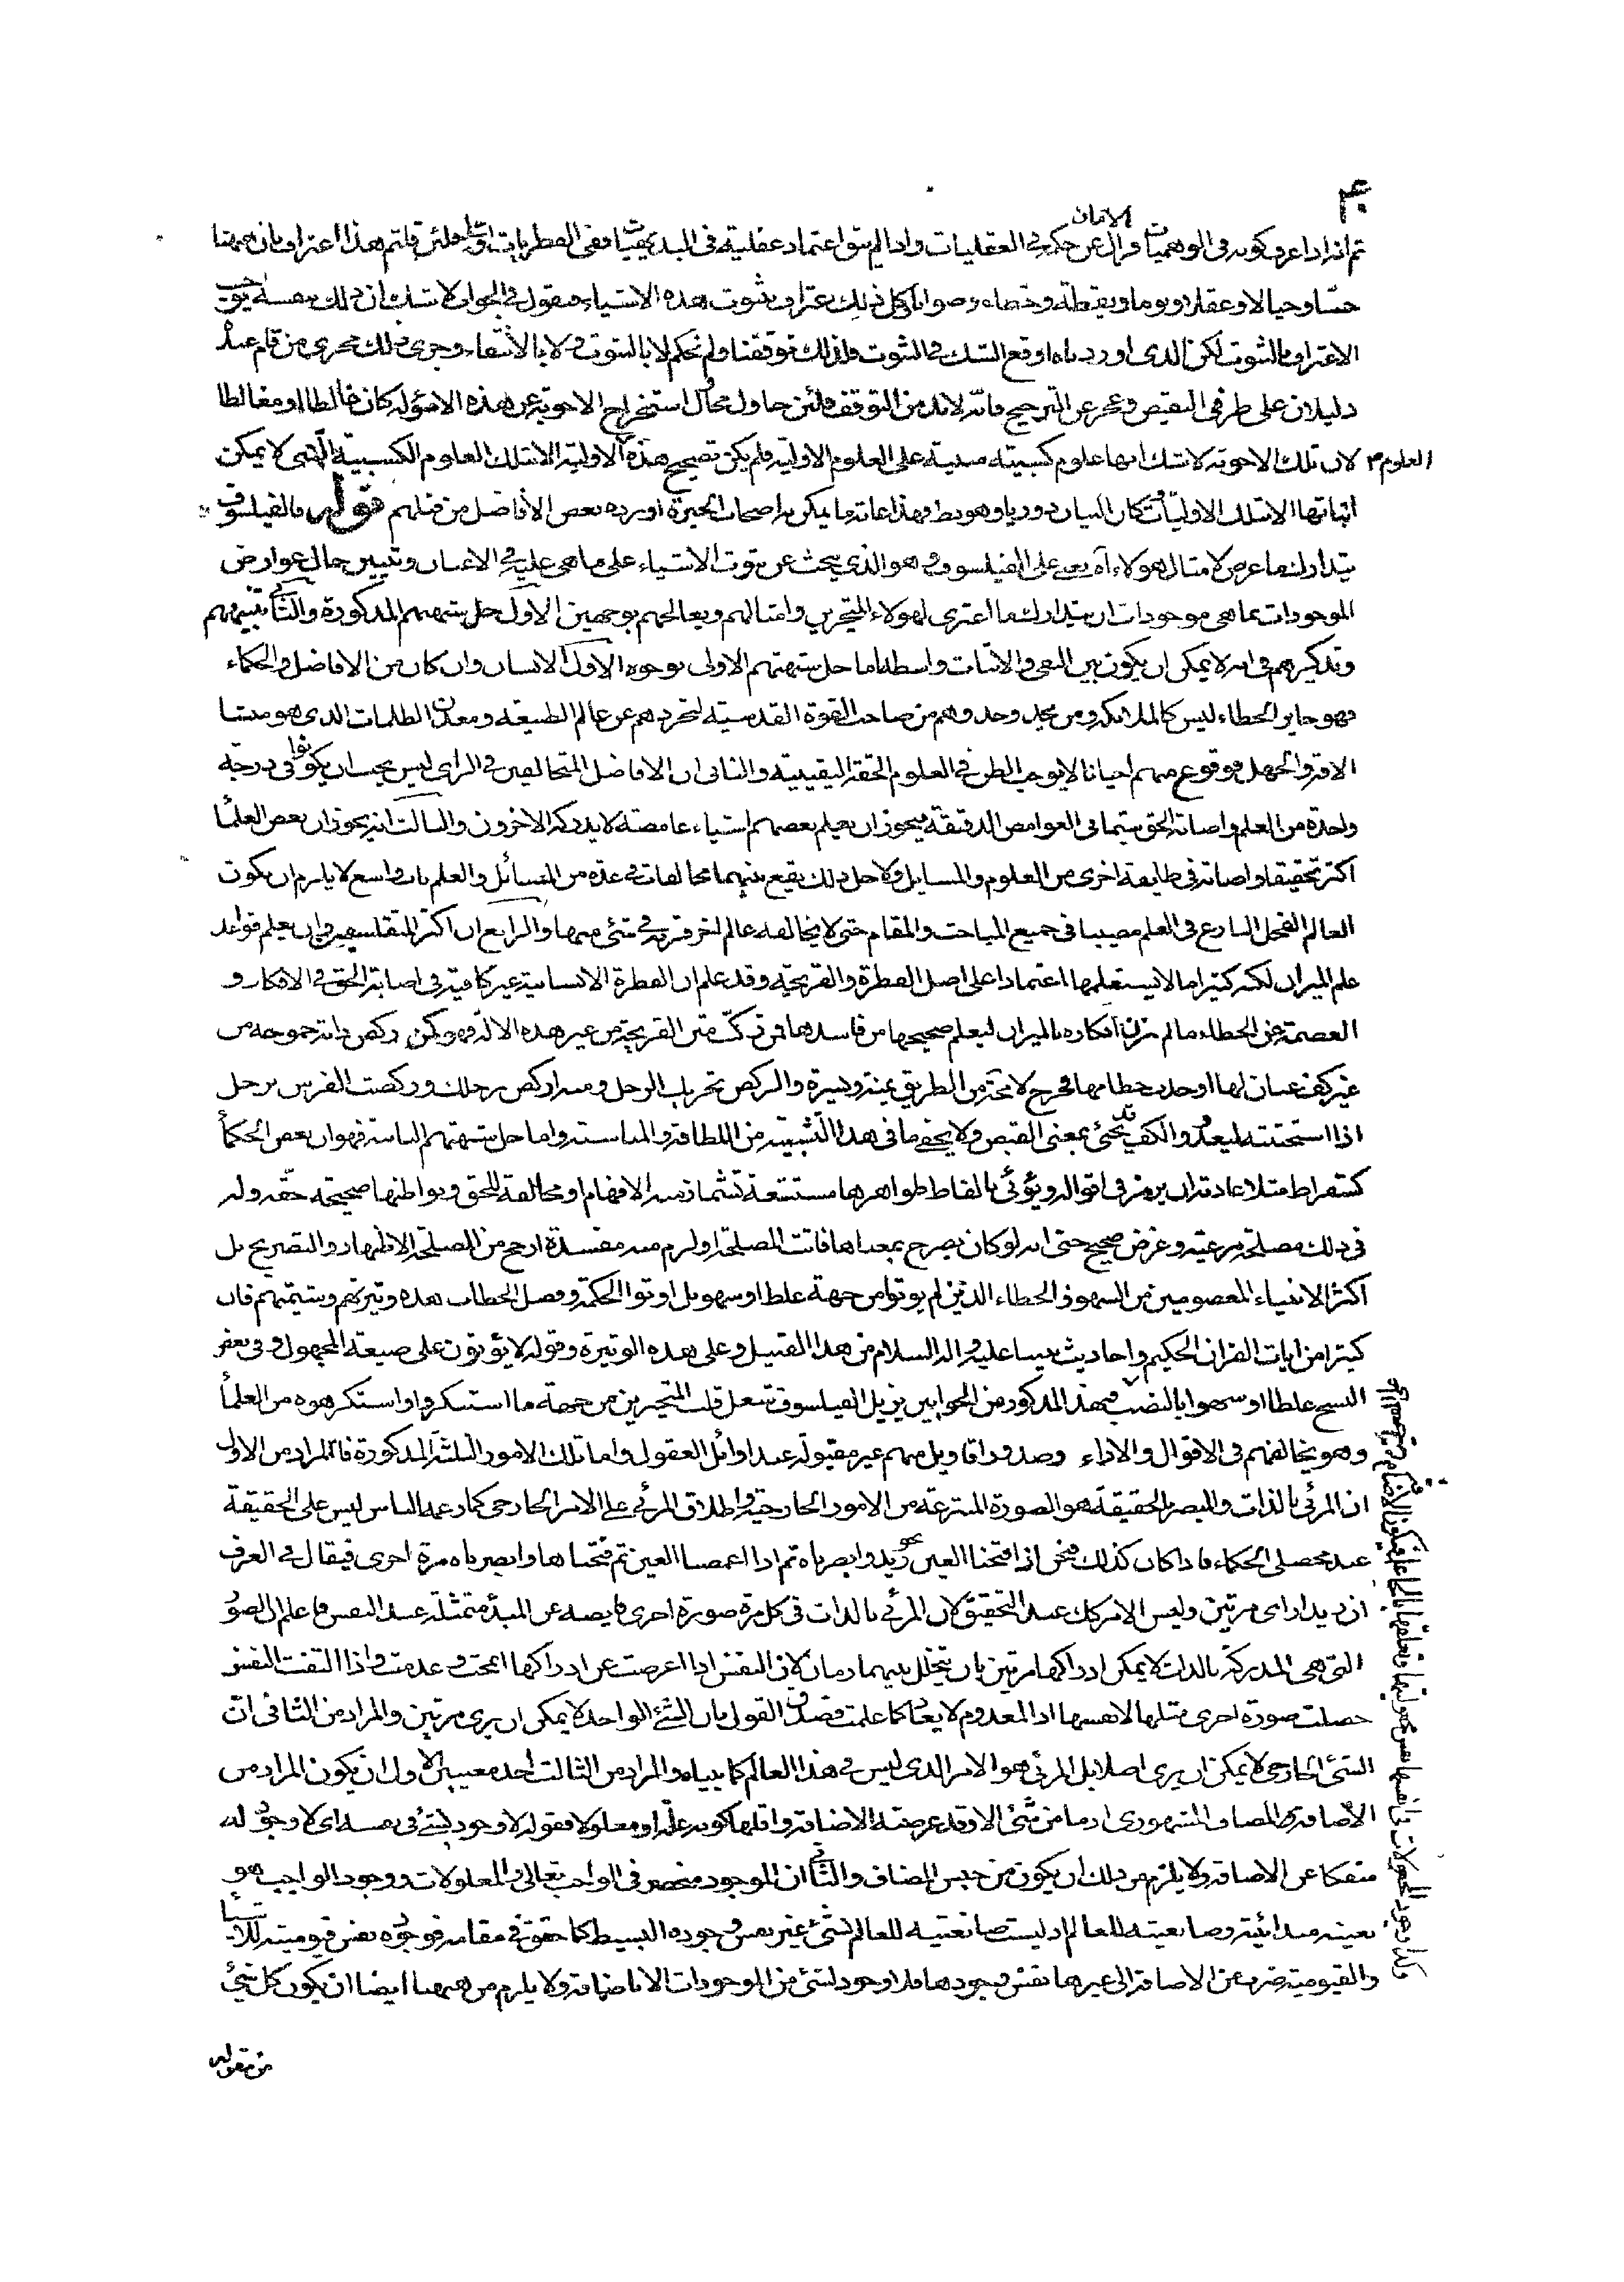 ۴۰
ثم انه اذا عرف كونه فى الوهميات و زال عن حكمه فى العقليات الامان واذا لم يبق اعتماد عقلية فى البديهيات ففى النظريات اولى ولئن قلتم هذا اعتراف بان ههنا
حسّا وخيالا وعقلا ونوما ويقظة وخطاء وصوابا وكل ذلك اعتراف بثبوت هذه الاشياء فنقول فى الجواب لا شك ان ذلك بنفسه يوجب
الاعتراف بالثبوت لكن الذى اوردناه اوقع الشك فى الثبوت ولذلك توقفنا ولم نحكم لا بالثبوت ولا بالانتفاء وجرى ذلك مجرى من قام عنده
دليلان على طرفى النقيض وعجز عن الترجيح فانه لابد من التوقف فلئن حاول محاول استخراج الاجوبة عن هذه الاسؤلة كان غالطا او مغالطا
لان تلك الاجوبة لا شك انها علوم كسبية مبنية على العلوم الاولية فلم يكن تصحيح هذه العلوم الاولية الا بتلك العلوم الكسبية التى لا يمكن
اثباتها الا بتلك الاوليات فكان البيان دوريا وهو بط فهذا غاية ما يمكن به اصحاب الحيرة اورده بعض الافاضل من قبلهم قوله فالفيلسوف
يتدارك ما عرض لامثال هؤلاء آه يعنى على الفيلسوف وهو الذى يبحث عن ثبوت الاشياء على ما هى عليه فى الاعيان وتبيين حال عوارض
الموجودات بما هى موجودات ان يتدارك ما اعترى لهؤلاء المتحيرين وامثالهم ويعالجهم بوجهين الاول حل شبهتهم المذكورة والثانى تنبيههم
وتذكيرهم فى انه لا يمكن ان يكون بين النفى والاثبات واسطة اما حل شبهتهم الاولى بوجوه الاول الانسان وان كان من الافاضل والحكماء
فهو جايز الخطاء ليس كالملائكة ومن يحذو حذوهم من صاحب القوة القدسية لتجردهم عن عالم الطبيعة ومعدن الظلمات الذى هو منشا
الافة والجهل فوقوع منهم احيانا لا يوجب الظن فى العلوم الحقة اليقينية والثانى ان الافاضل المتخالفين فى الراى ليس يجب ان يكونوا فى درجة
واحدة من العلم واصابة الحق سيما فى الغوامض الدقيقة فيجوز ان يعلم بعضهم اشياء غامضة لا يدركه الاخرون والثالث انه يجوز ان بعض العلماء
اكثر تحقيقا واصابة فى طايفة اخرى من العلوم والمسايل ولاجل ذلك يقع بينهما مخالفات فى عدة من المسائل والعلم باب واسع لا يلزم ان يكون
العالم الفحل البارع فى العلم مصيبا فى جميع المباحث والمقام حتى لا يخالفه عالم اخر قرينه فى شئ منها والرابع ان اكثر المتفلسفين وان يعلم قواعد
علم الميزان لكنه كثيرا ما لا يستعملها اعتمادا على اصل الفطرة والقريحة وقد علم ان الفطرة الانسانية غير كافية فى اصابة الحق فى الافكار و
العصمة من الخطاء ما لم يزن افكاره بالميزان ليعلم صحيحها من فاسدها فمن ركب متن القريحة من غير هذه الالة فهو كمن ركض دابة جموحه من
غير كف عنان لها او جذب خطامها فخرج لا محة من الطريق يمنة ويسرة والركض تحريك الرجل ومنه اركض برجلك وركضت الفرس برجلى
اذا استحثثته ليعدو والكف قد يجئ بمعنى القبض ولا يخفى ما فى هذا التشبيه من اللطافة والمناسبة واما حل شبهتهم الثانية فهو ان بعض الحكماء
كسقراط مثلا عادته ان يرمز فى اقواله ويؤتى بالفاظ ظواهرها مستشنعة تشمئز منه الافهام او مخالفة للحق وبواطنها صحيحة حقه وله
فى ذلك مصلحة مرعية وغرض صحيح حتى انه لو كان يصرح بمعناها فاتت المصلحة او لزم منه مفسدة ارجح من المصلحة الاظهار والتصريح بل
اكثر الانبياء المعصومين من السهو والخطاء الذين لم يوتوا من جهة غلط او سهو بل اوتوا الحكمة وفصل الخطاب هذه وتيرتهم وشيمتهم فان
كثيرا من ايات القران الحكيم واحاديث نبينا عليه واله السلام من هذا القبيل وعلى هذه الوتيرة وقوله لا يؤتون على صيغة المجهول وفى بعض
النسخ غلطا او سهوا بالنصب فبهذا المذكور من الجوابين يزيل الفيلسوف شغل قلب المتحيرين من جهة ما استنكروا او استكرهوه من العلماء
وهو يخالفهم فى الاقوال والاراء وصدور اقاويل منهم غير مقبولة عند اوائل العقول واما تلك الامور الثلثة المذكورة فالمراد من الاول
ان المرئى بالذات والمبصر بالحقيقة هو الصورة المنتزعة من الامور الخارجية واطلاق المرئى على الامر الخارجى كما زعمه الناس ليس على الحقيقة
عند محصلى الحكماء فاذا كان كذلك فنحن اذا فتحنا العين نحو زيد وابصرناه ثم اذا اغمضنا العين ثم فتحناها وابصرناه مرة اخرى فيقال فى العرف
ان زيدا راى مرتين وليس الامر كك عند التحقيق لان المرئى بالذات فى كل مرة صورة اخرى فايضة عن المبدأ متمثلة عند النفس فاعلم ان الصور
التى هى المدركة بالذات لا يمكن ادراكها مرتين بان يتخلل بينهما زمان لان النفس اذا اعرضت عن ادراكها انمحت وعدمت واذا التفت النفس
حصلت صورة اخرى مثلها لا نفسها اذ المعدوم لا يعاد كما علمت فصدق القول بان الشئ الواحد لا يمكن ان يرى مرتين والمراد من الثانى ان
الشئ الخارجى لا يمكن ان يرى اصلا بل المرئى هو الامر الذى ليس فى هذا العالم كما بيناه والمراد من الثالث احد معنيين الاول ان يكون المراد من
الاضافة المضاف المشهورى اذ ما من شئ الا وقد عرضته الاضافة واقلها كونه علة او معلولا فقوله لا وجود لشئ فى نفسه اى لا وجود له
منفكا عن الاضافة ولا يلزم من ذلك ان يكون من جنس المضاف والثانى ان الموجود منحصر فى الواجب تعالى والمعلولات ووجود الواجب هو
بعينه مبدائية وصانعيته للعالم اذ ليست صانعيته للعالم لشئ غير نفس وجوده البسيط كما حقق فى مقامه فوجوده نفس قيوميته للاشياء
والقيومية ضرب من الاضافة الى غيرها نفس وجودها فلا وجود لشئ من الموجودات الا باضافة ولا يلزم من ههنا ايضا ان يكون كل شئ
من مقوله